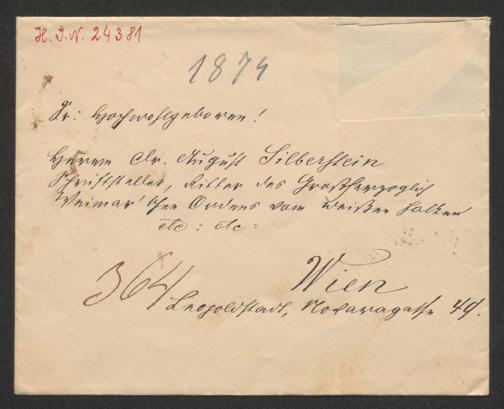 H. I. N. 24381
1874
Sr: Hochwohlgeboren!
Herrn Dr. August Silberstein
Schriftsteller, Ritter des Großherzoglich
Weimar'schen Ordens vom weißen Falken
etc: etc:
Wien
364
Leopoldstadt, Novaragasse 49.